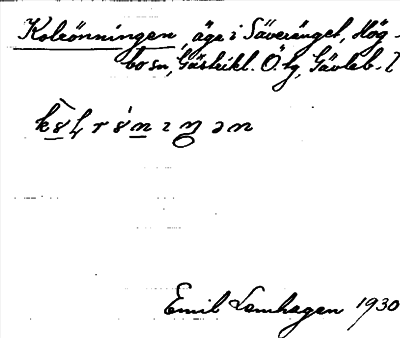 Kolrönningen, äga i Säveränget, Hög-
bo sn, Gästrikl. Ö. hg, Gävleb. l
Emil Lenhagen 1930